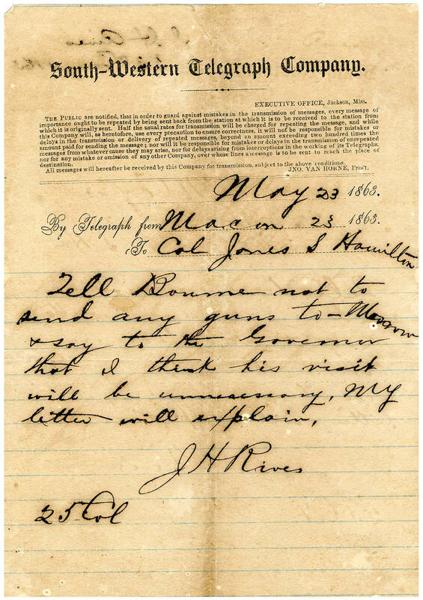 South-Western Telegraph Company.
EXECUTIVE OFFICE, Jackson, Miss.
THE PUBLIC are notified, that in order to guard against mistakes in the transmission of messages, every message of
importance ought to be repeated by being sent back from the station at which it is to be received to the station from
which it is originally sent. Half the usual rates for transmission will be charged for repeating the message, and while
this Company will, as heretofore, use every precaution to ensure correctness, it will not be responsible for mistakes or
delays in the transmission or delivery of repeated messages, beyond an amount exceeding two hundred times the
amount paid for sending the message; nor will it be responsible for mistakes or delays in the transmission of unrepeated
messages from whatever cause they may arise, nor for delays arising from interruptions in the working of its Telegraph,
nor for any mistake or omission of any other Company, over whose lines a message is to be sent to reach the place of
destination.
All messages will hereafter be received by this Company for transmission, subject to the above conditions.
JNO. VAN HORNE, Pres't.
May 23 1863.
By Telegraph from Macon 23 1863.
To Col Jones S Hamilton
Tell Bourne not to
send any guns to Morrow
& say to the Governor
that I think his visit
will be unnecessary, My
letter will explain,
J H Rives
25 Col